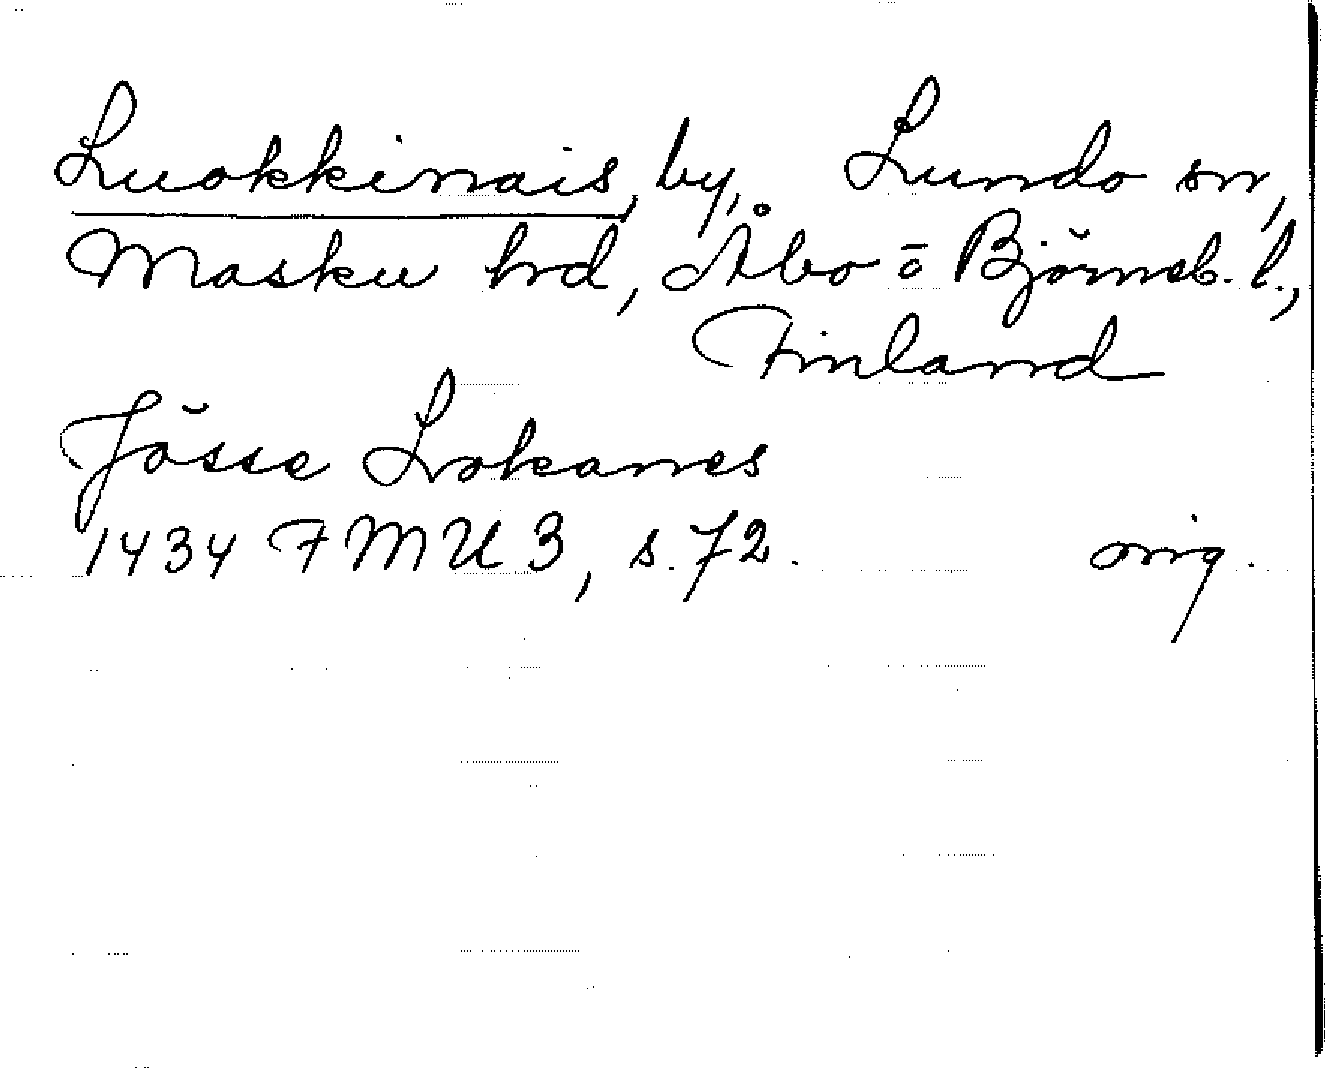 Luokkinais, by, Lundo sn,
Masku hrd, Åbo o Björneb. l.,
Finland
Jösse Lokanes
1434 FMU 3, s. 72. orig.